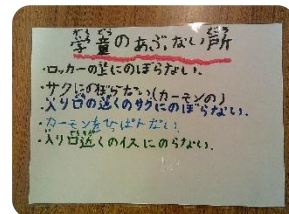 学童のあぶない所
・ロッカーの上にのぼらない.
・サクにのぼらない(カーモンの)
・入り口の近くのサクにのぼらない.
・カーモンをひっぱらない
・入り口近くのイスにのらない.